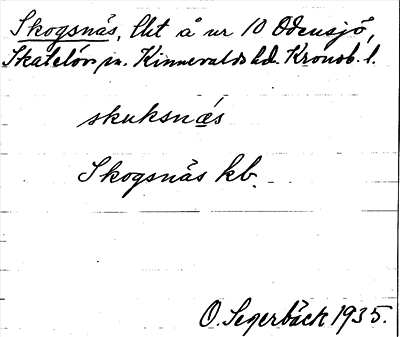 Skogsnäs, lht å nr 10 Odensjö,
Skatelöv sn. Kinnevalds hd. Kronob. l.
skuksnäs
Skogsnäs kb.
O. Segerbäck 1935.